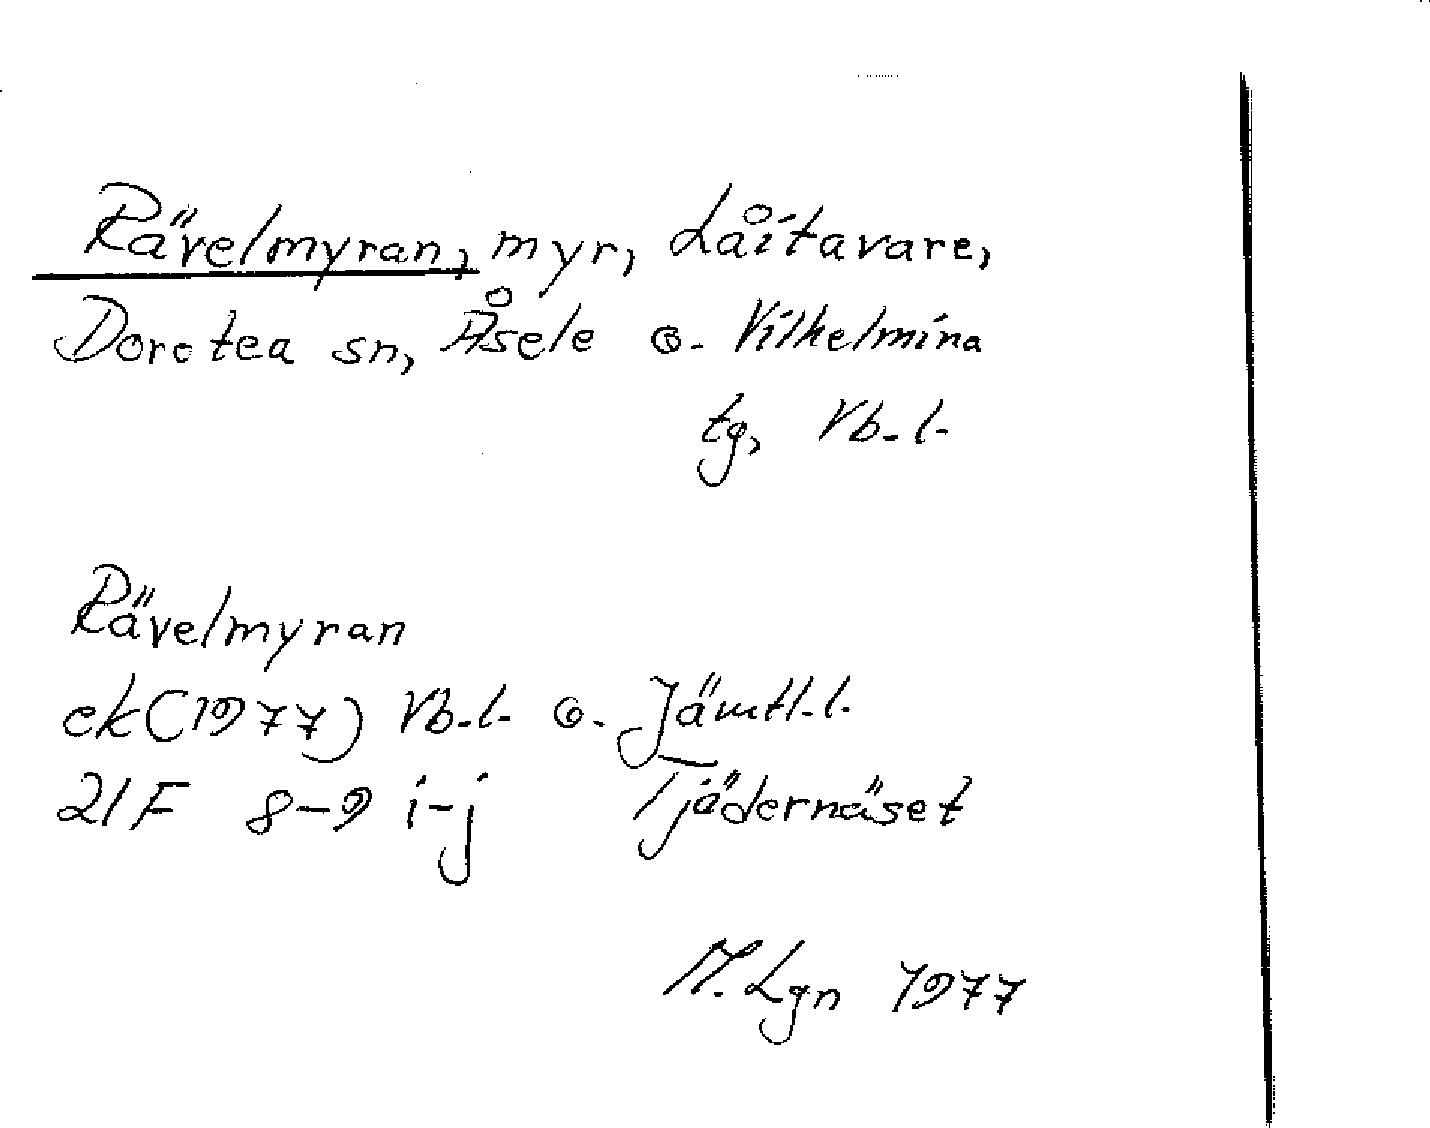 Rävelmyran, myr, Låitavare,
Dorotea sn, Åsele o. Vilhelmina
tg, Vb. l.
Rävelmyran
ek (1977) Vb. l. o. Jämtl. l.
21F 8-9 i-j Tjädernäset
M. Lgn 1977